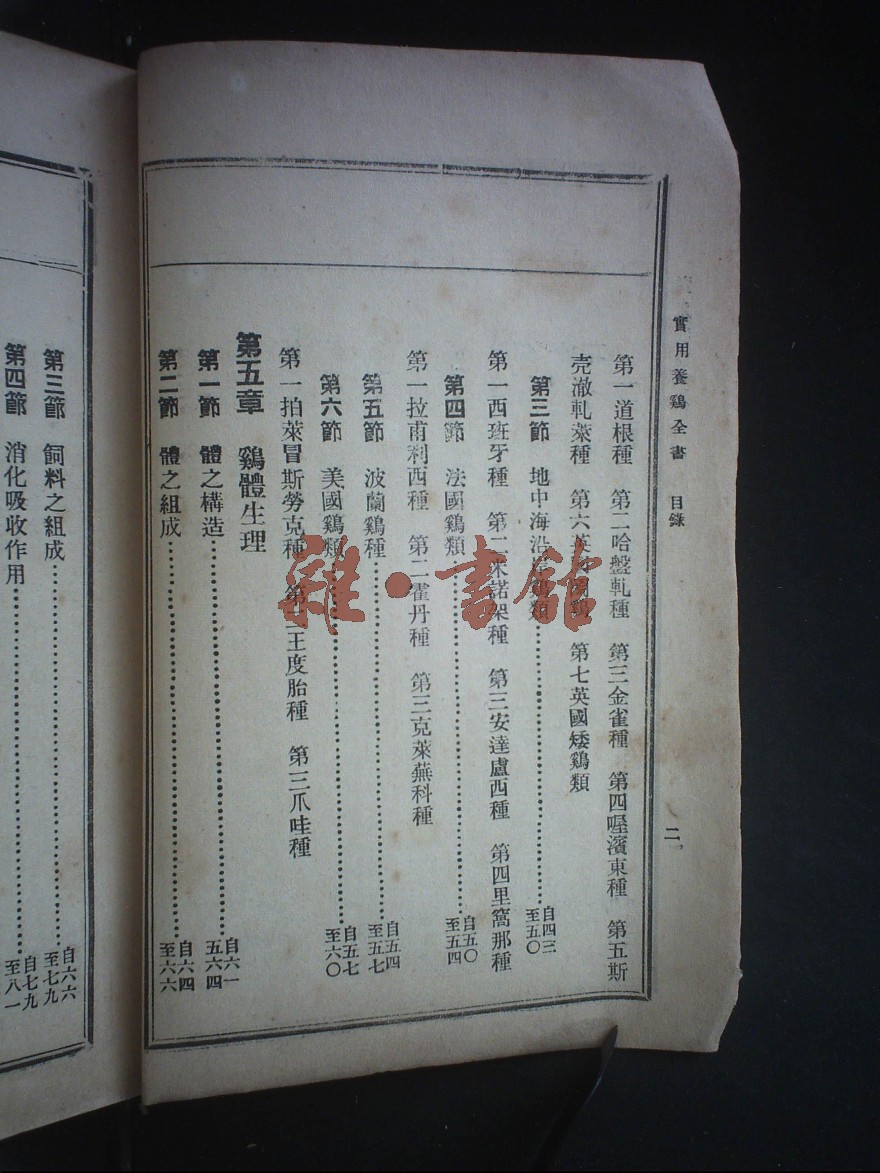 實用養鷄全書　目錄　二
第一道根種　第二哈盤軋種　第三金雀種　第四喔濱東種　第五斯
壳澈軋萊種　第六英　第七英國矮鷄類
第三節　地中海沿　鷄類……自四三至五〇
第一西班牙種　第二米諾架種　第三安達盧西種　第四里窩那種
第四節　法國鷄類……自五〇至五四
第一拉甫利西種　第二霍丹種　第三克萊蕪科種
第五節　波蘭鷄種……自五四至五七
第六節　美國鷄類……自五七至六〇
第一拍萊冒斯勞克種　第二王度胎種　第三爪哇種
第五章　鷄體生理
第一節　體之構造……自六一五六四
第二節　體之組成……自六四至六六
第三節　飼料之組成……自六六至七九
第四節　消化吸收作用……自七九至八一
雜·書館